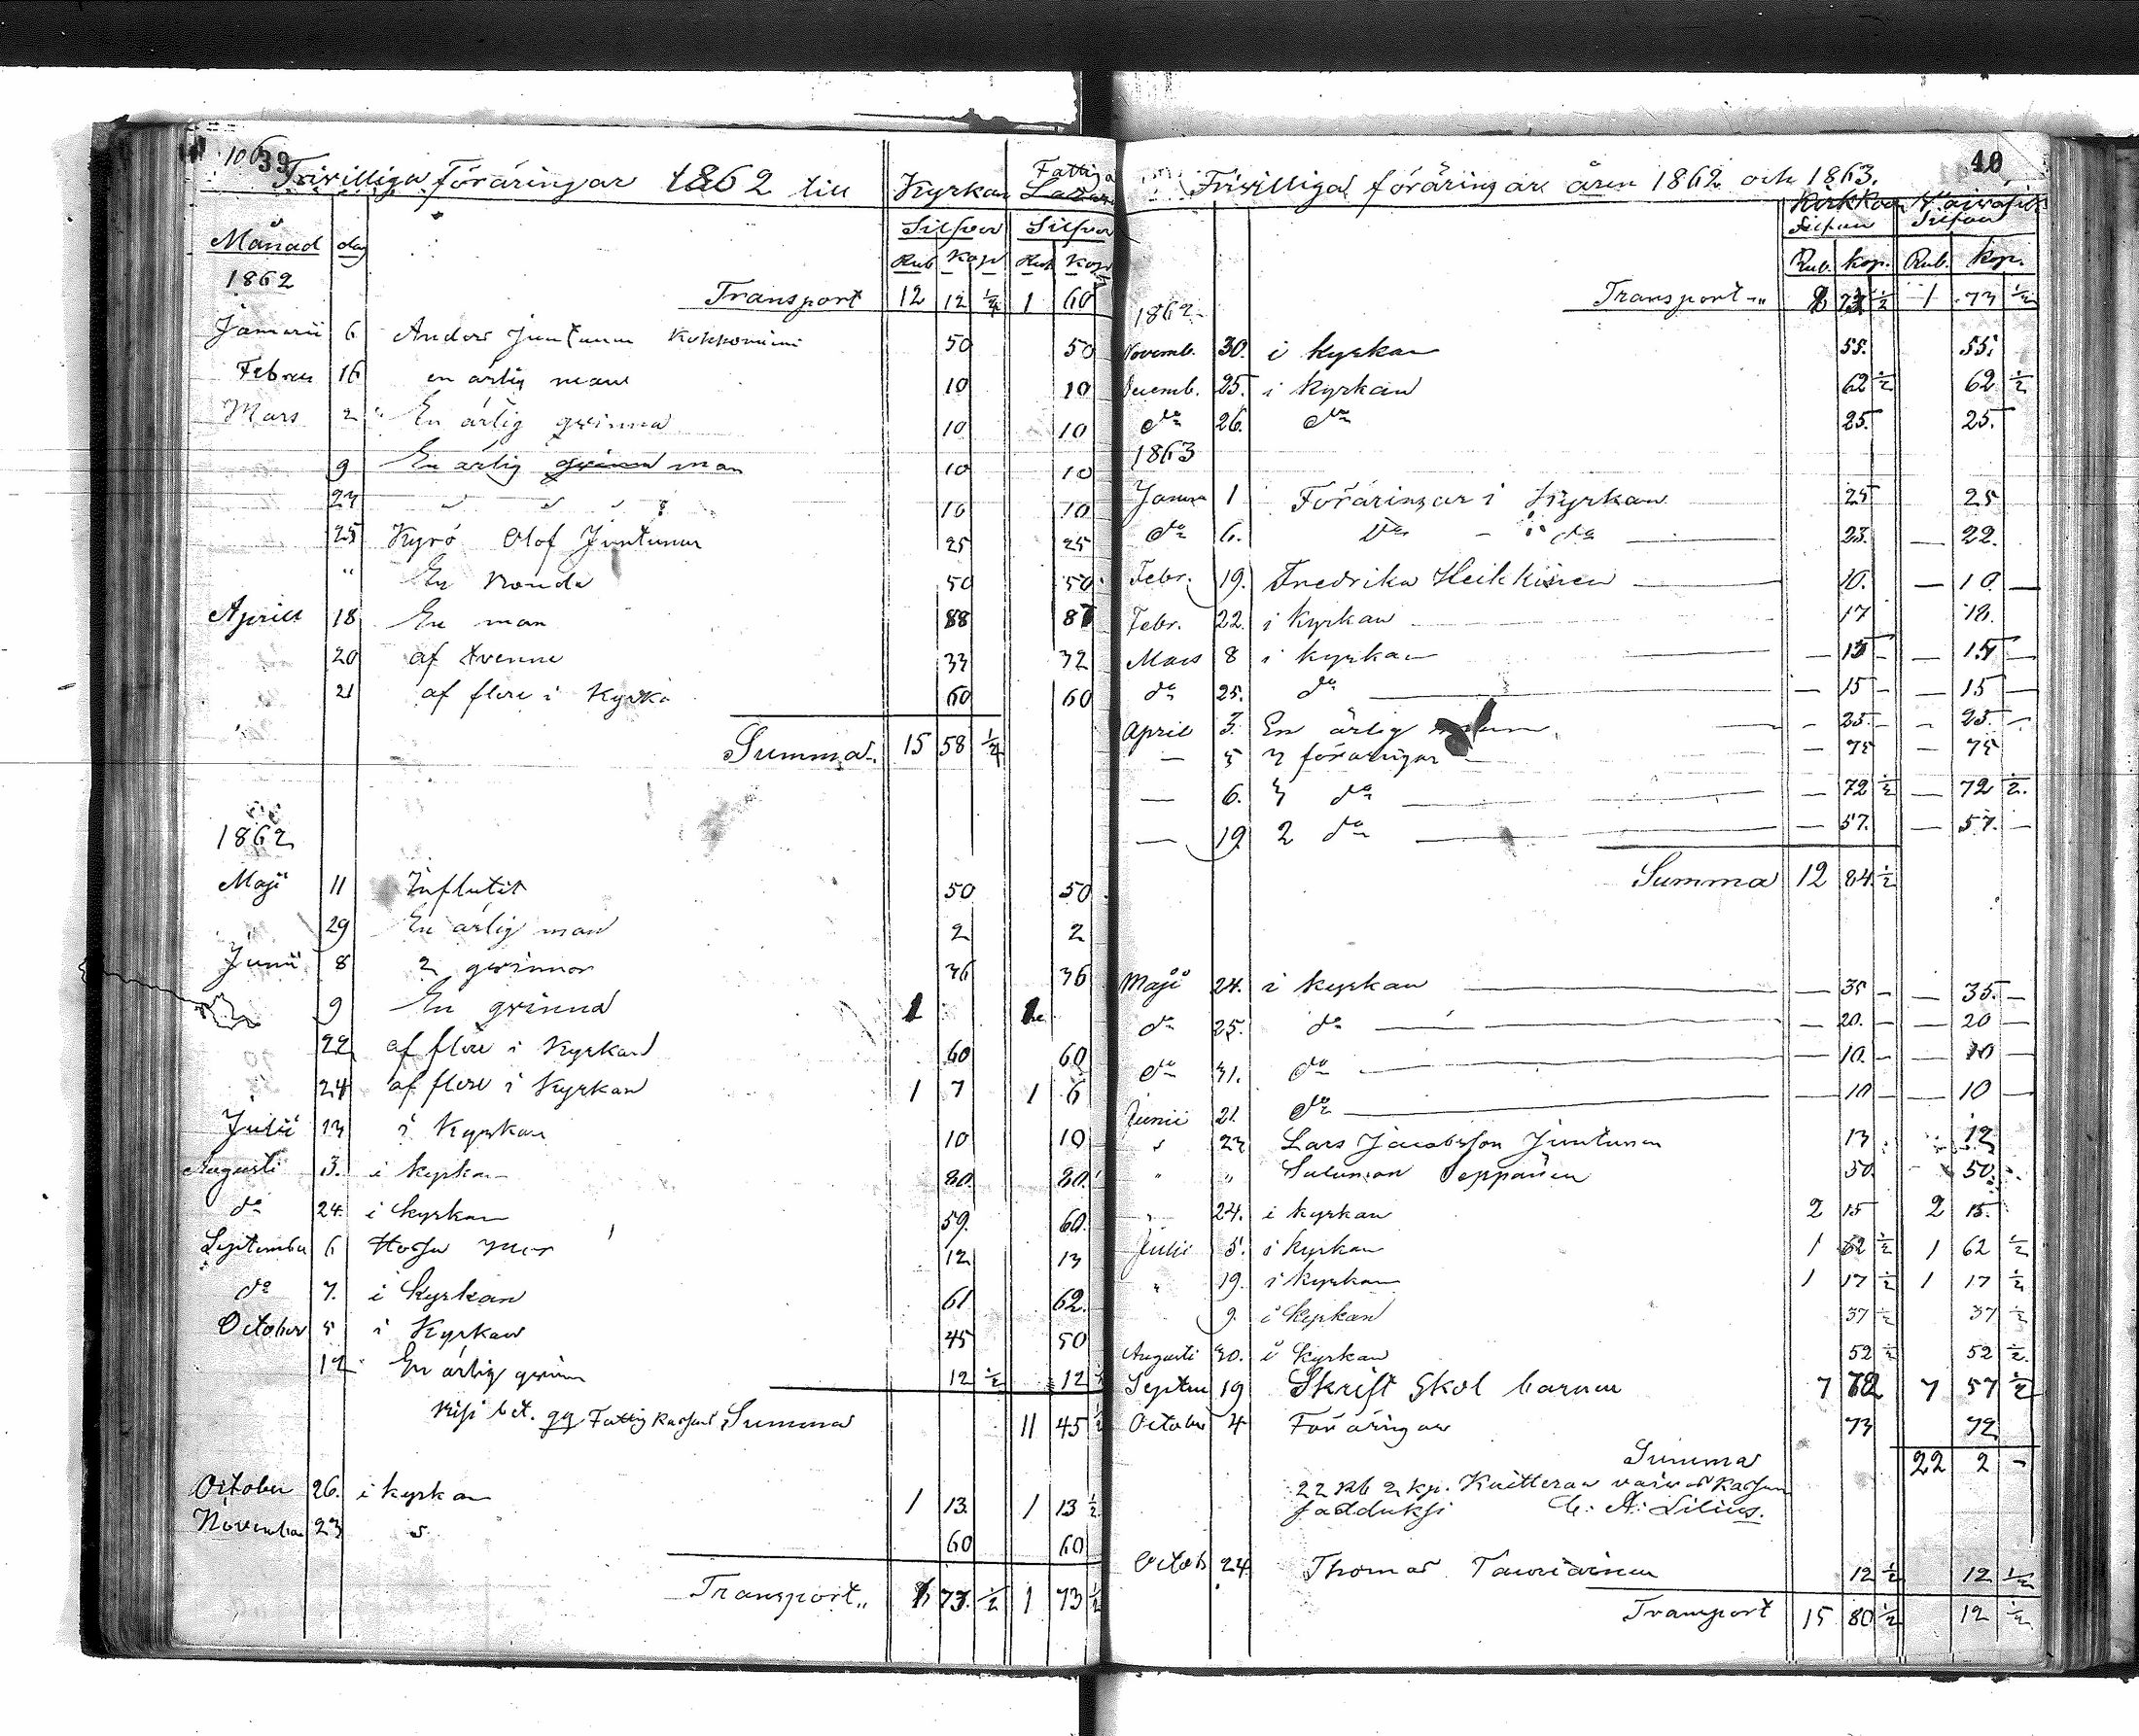 106 39
Frivilliga Föräringar 1862 till Kyrkan Fattiga
Silfver Silfver
Månad dag Rub Kop Rub Kop
1862 Transport 12 12 1/2 1 60
Januarii 6 Anders Juntunen 50 50
Februa 16 en ärlig man 10 10
Mars 2 En ärlig qvinna 10 10
9 En ärlig qvinna man 10 10
23 " " " 10 10
25 Kyrö Olof Juntunen 25 25
" En 50 50
Aprill 18 En man 88 87
20 af tvenne 33 32
21 af flere i Kyrka 60 60
Summa 15 58 1/2
1862
Maji 11 Influtit 50 50
29 En ärlig man 2 2
Junii 8 2 qvinnor 36 36
9 En qvinna 1 1
22 af flere i Kyrkan 60 60
24 af flere i Kyrkan 1 7 1 6
Julii 13 i Kyrkan 10 10
Augusti 3. i kyrkan 80. 80.
do 24. i kyrkan 59. 60.
September 6 12 13
do 7. i Kyrkan 61 62.
October 5 i Kyrkan 45 50
12 En ärlig qvinn 12 1/2 12 1/2
Fattig Kassan Summa 11 45 1/2
October 26. i kyrkan 1 13. 1 13 1/2
November 23 60 60
Transport 73. 1/2 1 73 1/2
40
Frivilliga föräringar åren 1862 och 1863.
Kirkkoon
Rub. Kop. Rub. Kop.
Transport 1 73 1/2
1862
Novemb. 30. i kyrkan 55. 55.
Decemb. 25. i kyrkan 62 1/2 62 1/2
do 26. do 25. 25.
1863
Janua 1 Föräringar i Kyrkan 25 25
do 6. do i do 23. 22.
Febr. 19. Fredrika Heikkinen 10. 10.
Febr. 22. i Kyrkan 17 18.
Mars 8 i kyrkan 15 15
do 25. do 15 15
April 3. En ärlig 25. 25.
5 3 föräringar 75 75
6. 3 do 72 1/2 72 1/2
19 2 do 57. 57.
Summa 12 84 1/2
Maji 24. i kyrkan 35 35.
do 25. do 20. 20
do 31. do 10. 10
Junii 21. do 10 10
" 23 Lars Jacobsson Juntunen 13 12
" " Salomon Seppänen 50 50
24. i kyrkan 2 15 2 15
Julii 5. i kyrkan 1 62 1/2 1 62 1/2
" 19. i kyrkan 1 17 1/2 1 17 1/2
9. i kyrkan 37 1/2 37 1/2
Augusti 30. i kyrkan 52 1/2 52 1/2
Septem 19 Skrift Skol barnen 7 7 57 1/2
October 4 Föräringar 73 72
Summa 22 2
22 Rb 2 kp. Kuitteraa
Lilius.
Octob 24 Thomas 12 1/2 12 1/2
Transport 15 80 1/2 12 1/2